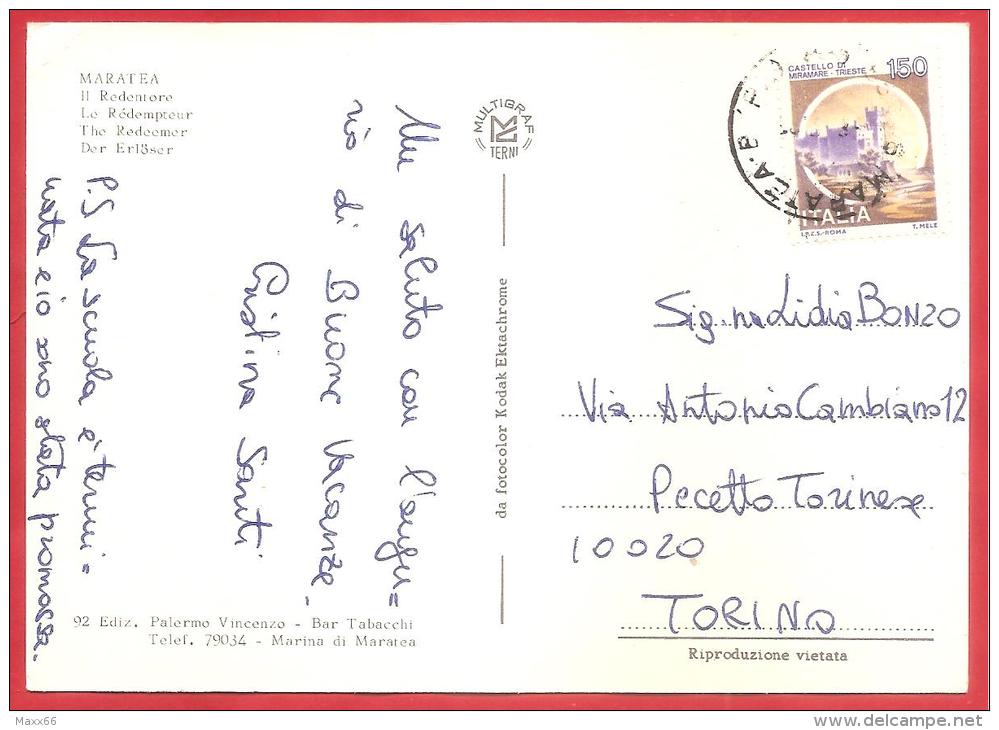 MARATEA
Il Redentore
Le Rédempteur
The Redeemer
Der Erlöser
Un saluto con l'augu=
rio di Buone Vacanze.
Cristina Santi
P.S La scuola è termi=
nata e io sono stata promossa.
92 Ediz. Palermo Vincenzo - Bar Tabacchi
Telef. 79034 - Marina di Maratea
MULTIGRAF
TERNI
da fotocolor Kodak Ektachrome
CASTELLO DI
MIRAMARE - TRIESTE
150
ITALIA
I.P.Z.S.-ROMA
T. MELE
MARATEA
Sig.na Lidia BONZO
Via Antonio Cambiano 12
Pecetto Torinese
10020
TORINO
Riproduzione vietata
Maxx66
www.delcampe.net